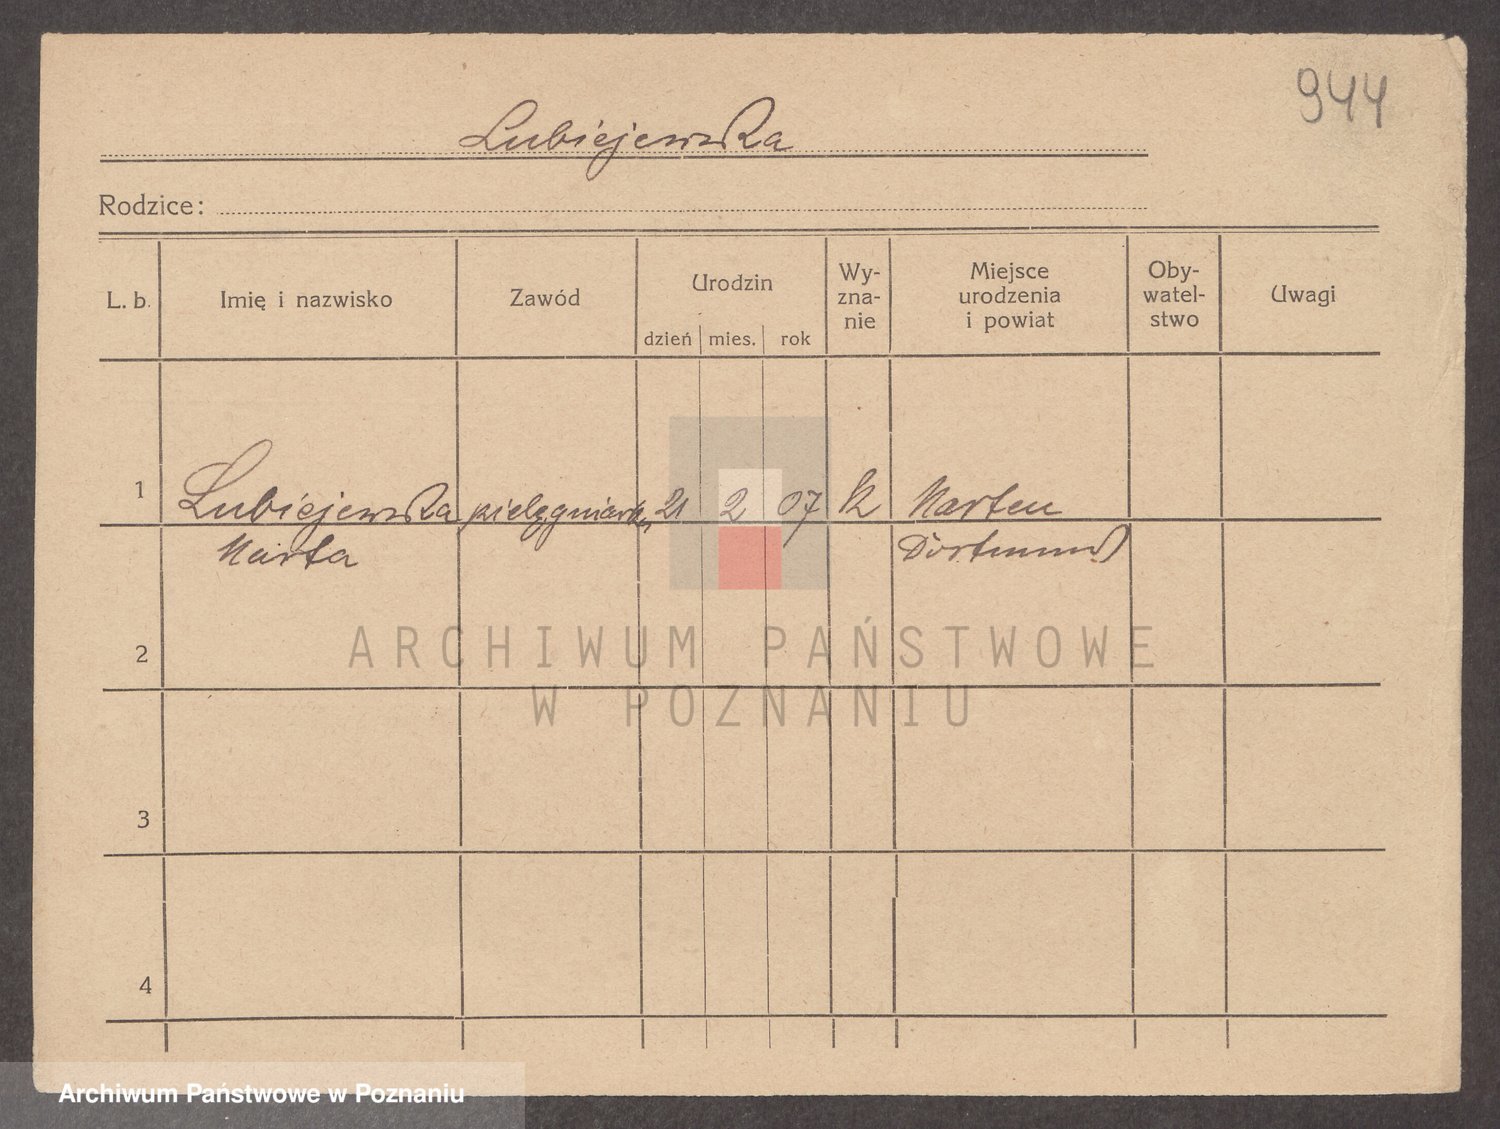 944
Lubiejewska
Rodzice:
L. b. Imię i nazwisko Zawód Urodzin dzień mies. rok Wy-zna-nie Miejsce urodzenia i powiat Oby-watel-stwo Uwagi
1 Lubiejewska pielęgniarka 21 2 07 k Marten
Marta Dortmund
ARCHIWUM PAŃSTWOWE
2
W POZNANIU
3
4
Archiwum Państwowe w Poznaniu